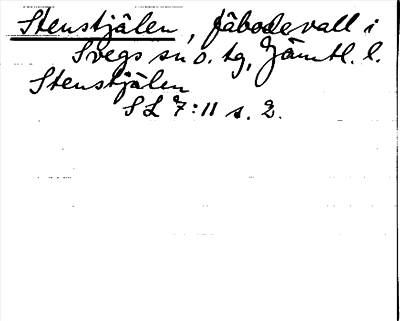 Stenstjälen, fäbodevall i
Svegs sn o. tg, Jämtl. l.
Stenstjälen
SL 7:11 s. 2.